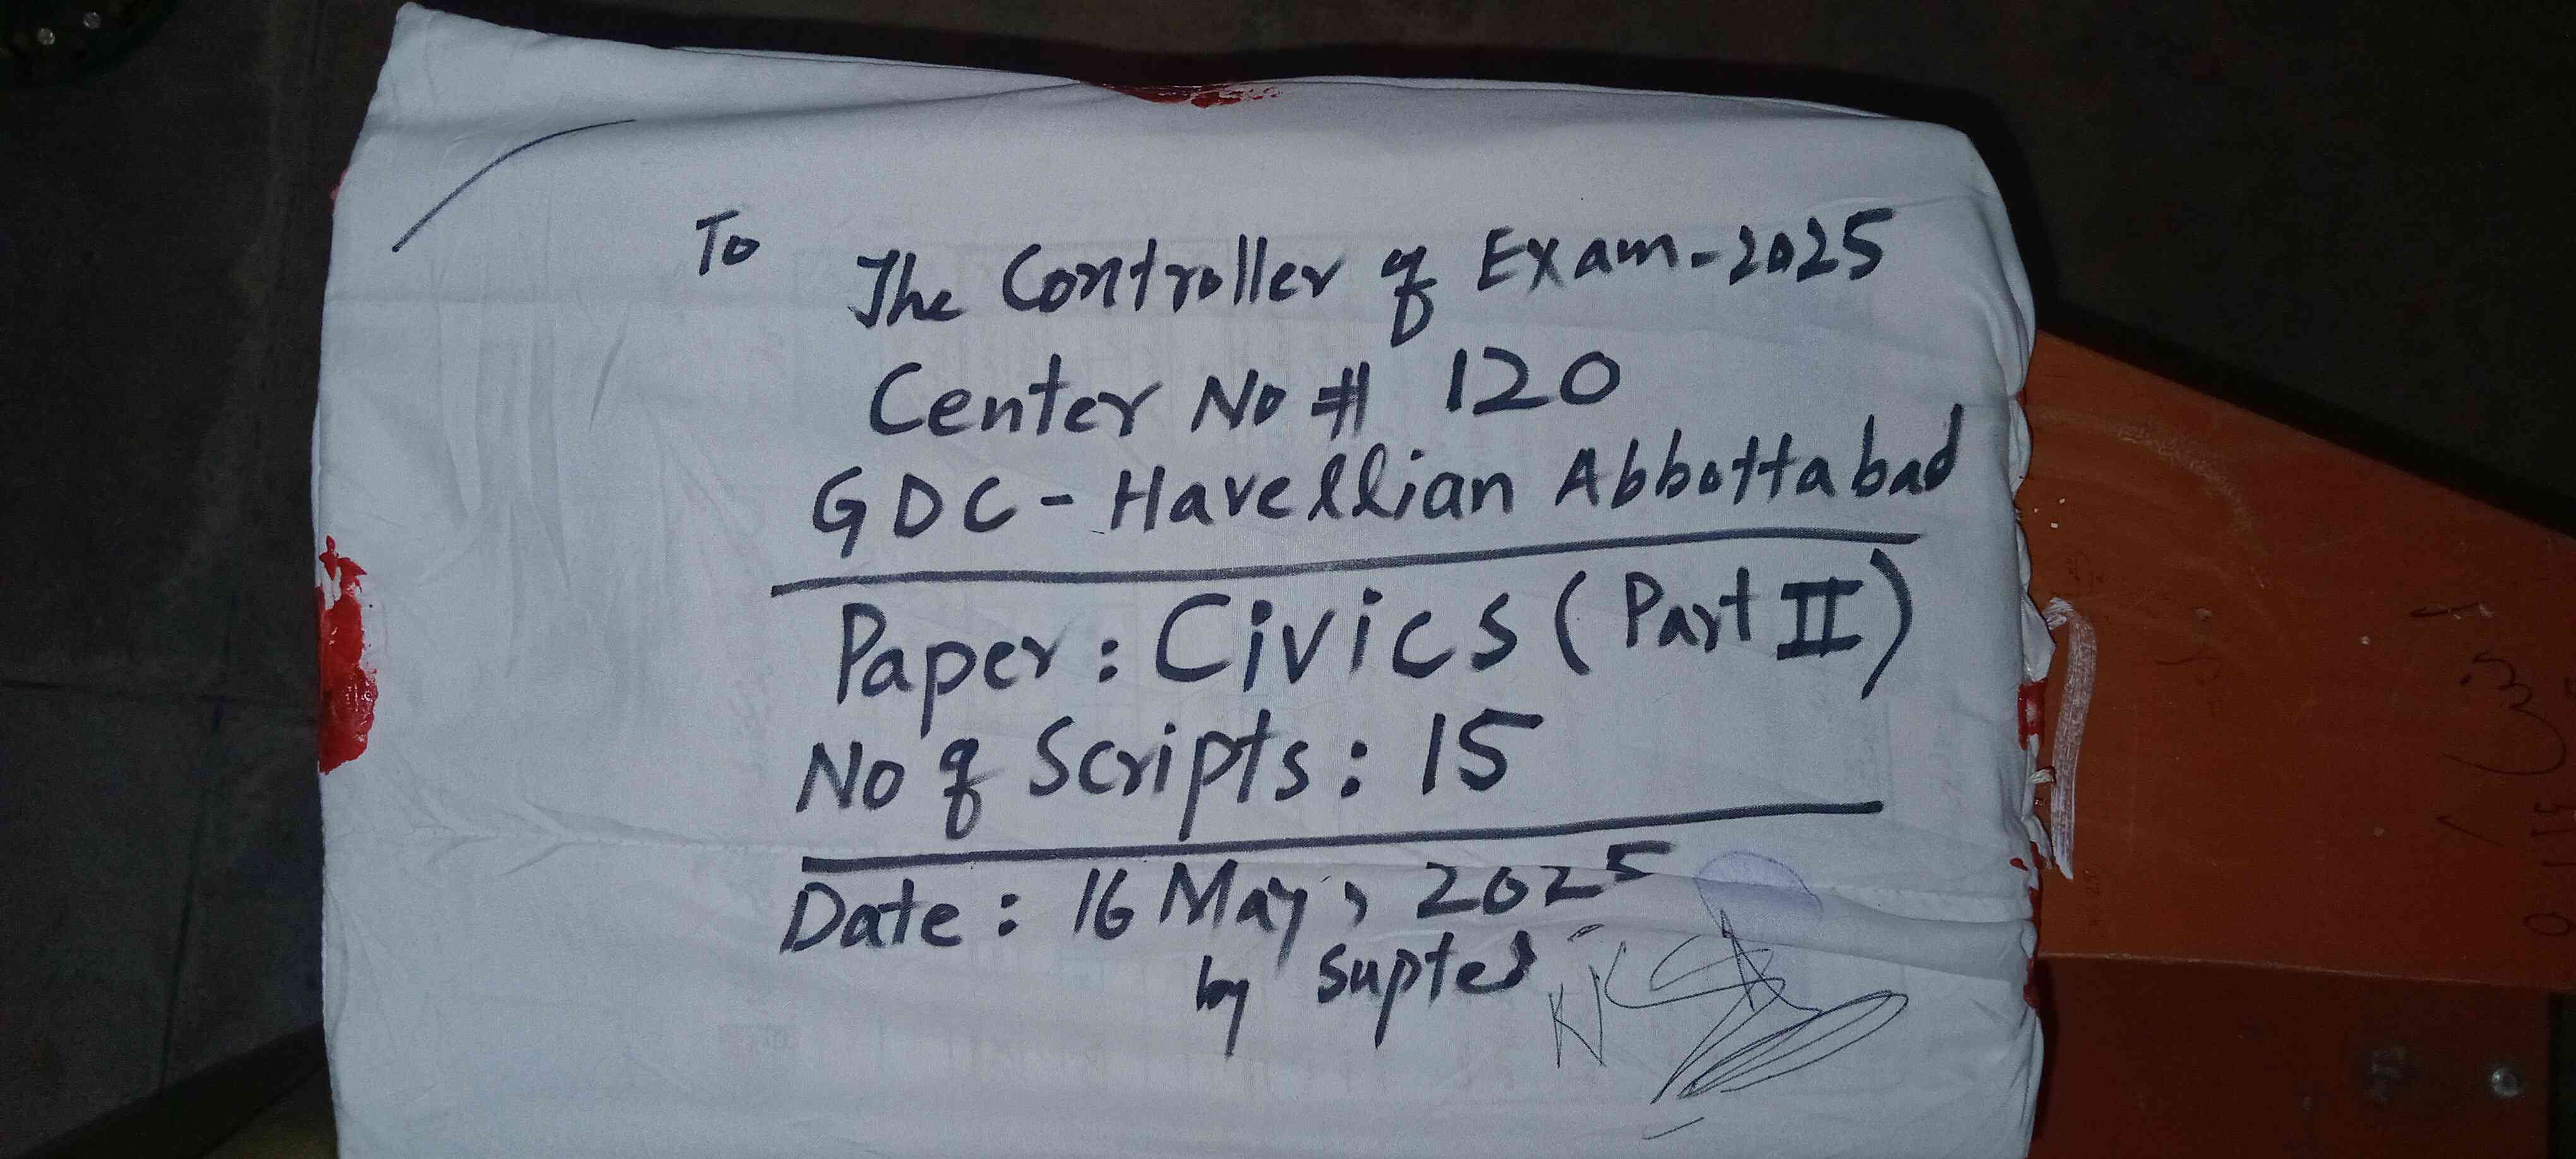 To
The Controller of Exam-2025
Center No # 120
GDC - Havellian Abbottabad
Paper : Civics (Part II)
No of Scripts : 15
Date : 16 May, 2025
by Supted